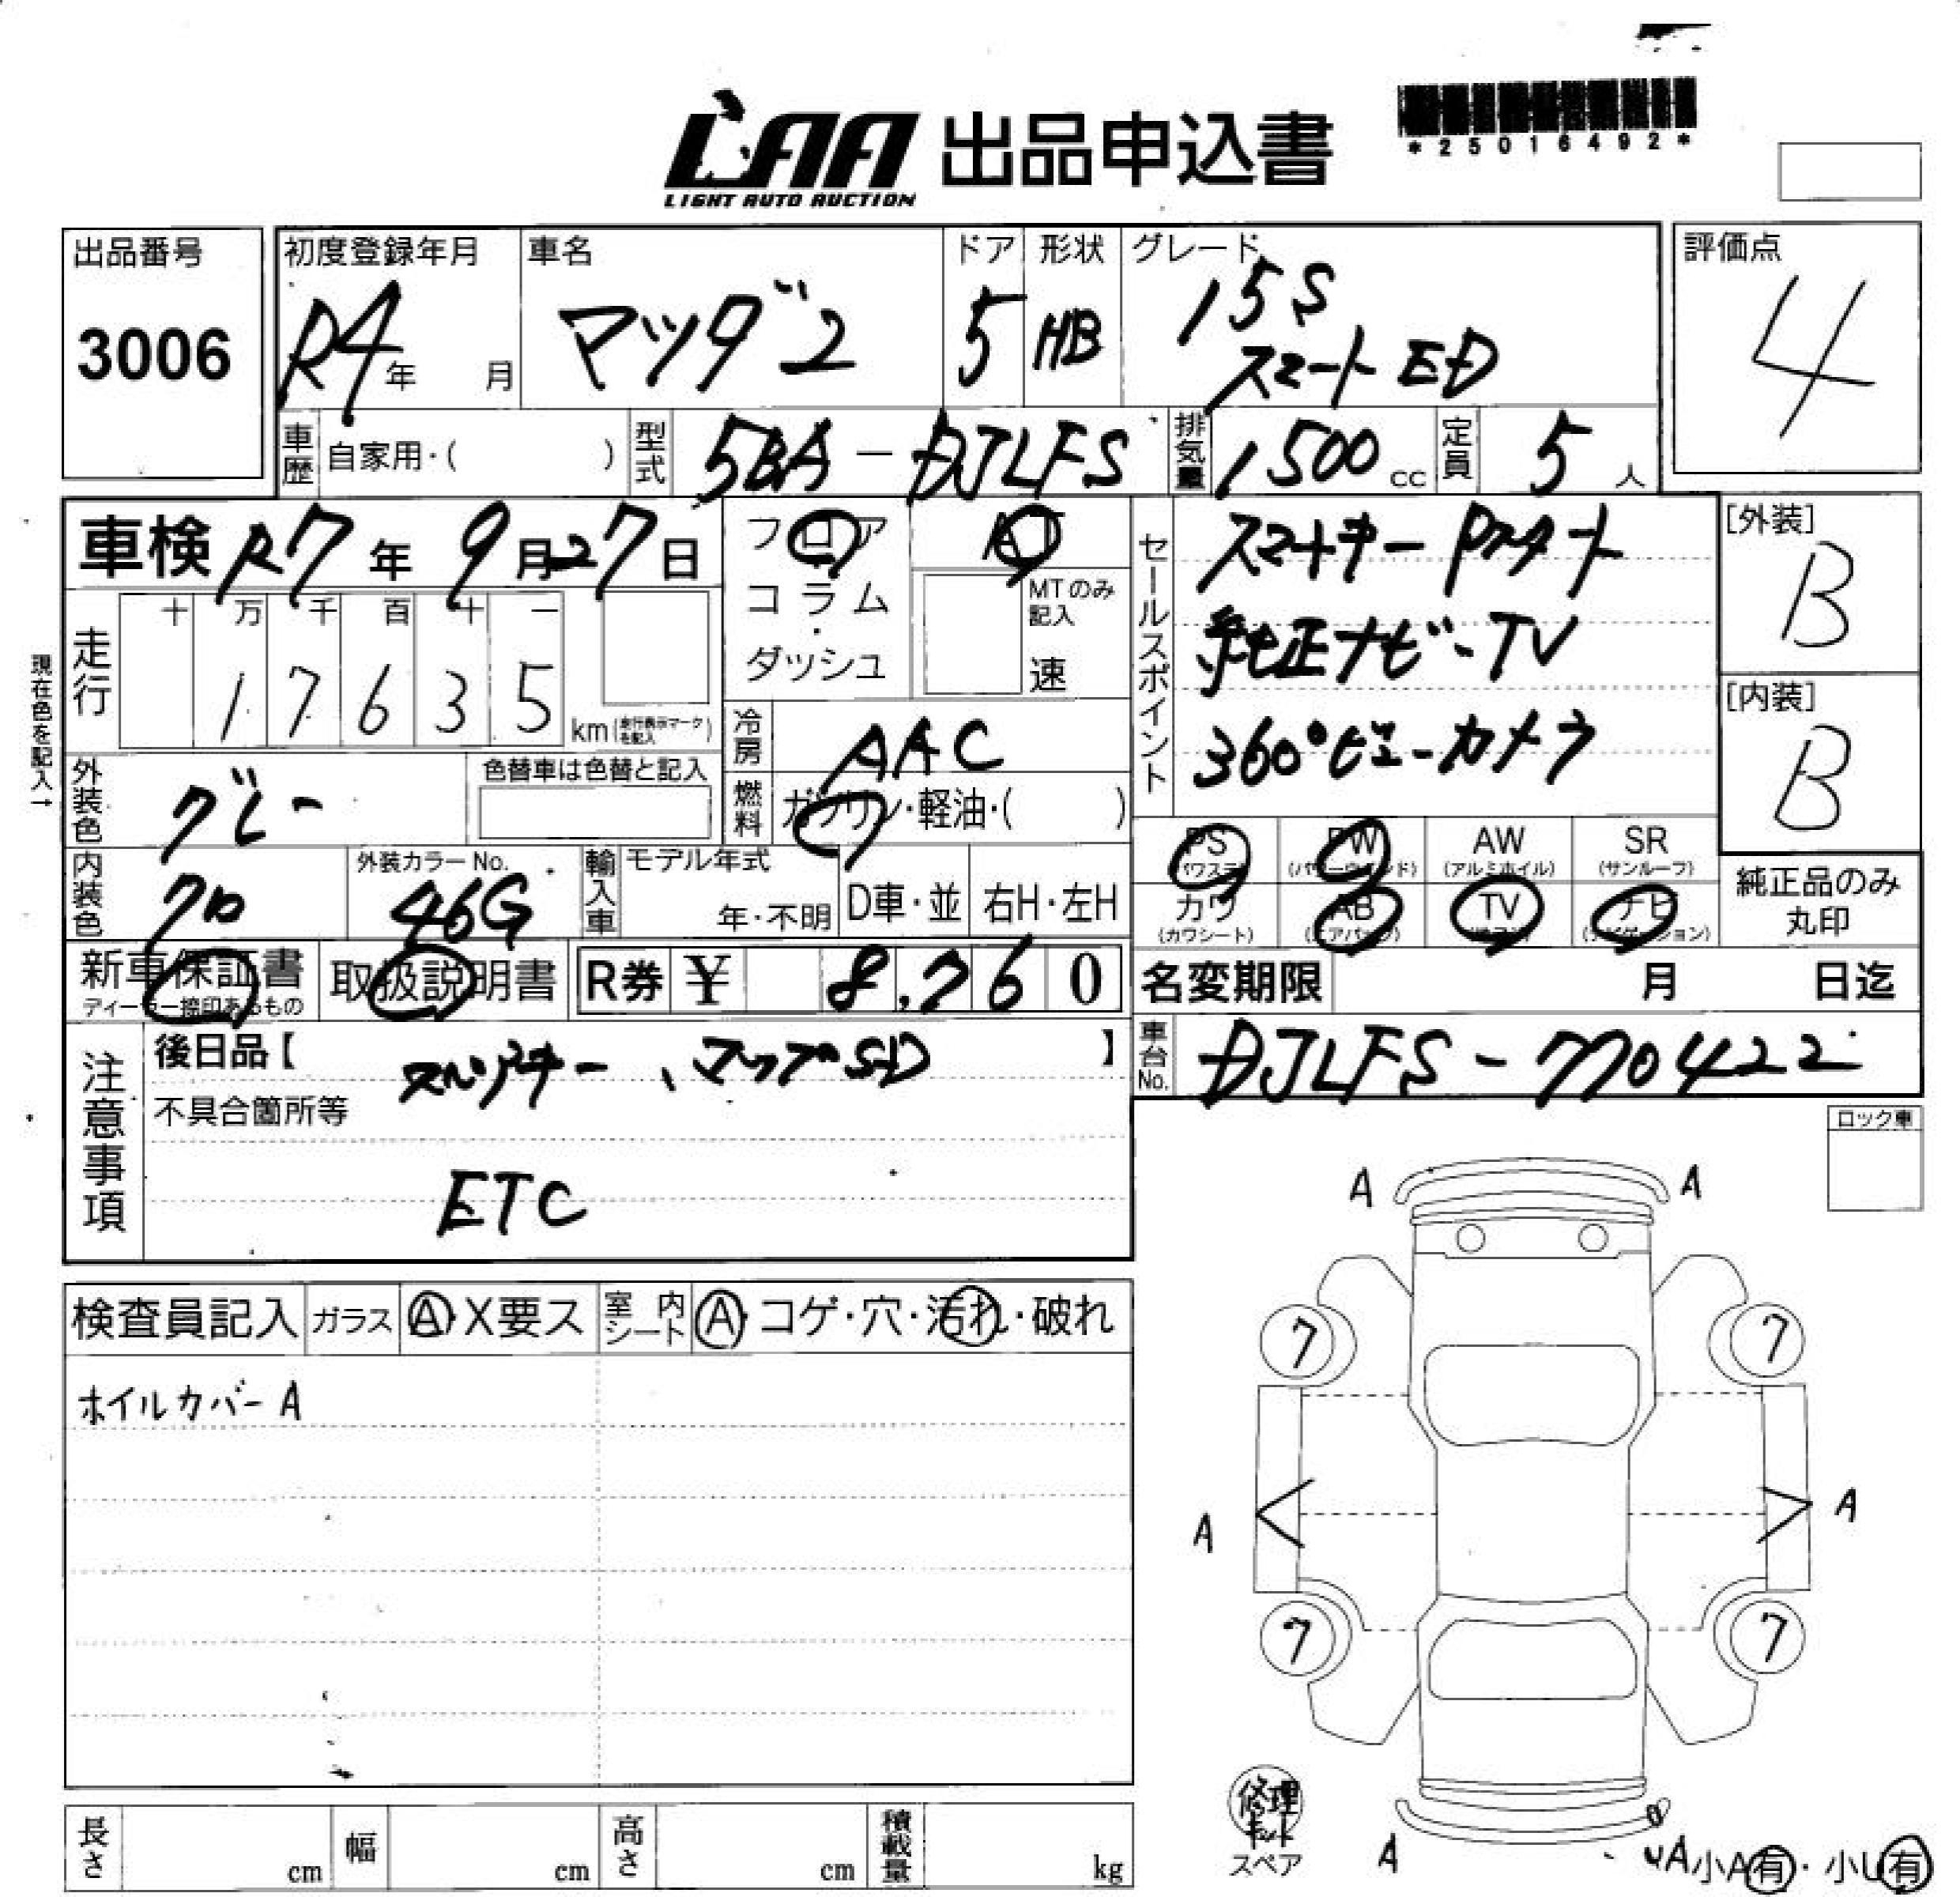 LAA 出品申込書
LIGHT AUTO AUCTION
*25016492*
出品番号
3006
初度登録年月
R4年 月
車名
マツダ2
ドア
5
形状
HB
グレード
15S
スマートED
評価点
4
車歴
自家用・( )
型式
5BA-DJLFS
排気量
1500 cc
定員
5 人
車検 R7年 9月27日
フロア
コラム
・
ダッシュ
AT
MTのみ
記入
速
セールスポイント
スマートキー Pスタート
純正ナビ-TV
360°ビューカメラ
[外装]
B
[内装]
B
現在色を記入→
走行
十 万 千 百 十 一
1 7 6 3 5
km(走行表示マークを記入)
冷房
AAC
燃料
ガソリン・軽油・( )
外装色
グレー
色替車は色替と記入
内装色
クロ
外装カラーNo.
46G
輸入車
モデル年式
年・不明
D車・並
右H・左H
PS
(パワステ)
PW
(パワーウインド)
AW
(アルミホイル)
SR
(サンルーフ)
カワ
(カワシート)
AB
(エアバッグ)
TV
ナビ
(ナビゲーション)
純正品のみ
丸印
新車保証書
ディーラー捺印あるもの
取扱説明書
R券 ¥ 8,760
名変期限 月 日迄
注意事項
後日品【 スペアキー、マップSD 】
不具合箇所等
ETC
車台No.
DJLFS-770422
ロック車
検査員記入
ガラス
A・X要ス
室内シート
A・コゲ・穴・汚れ・破れ
ホイルカバーA
A A
7 7
A A
7 7
修理
キット
スペア
A
UA
小A有・小U有
長さ cm
幅 cm
高さ cm
積載量 kg